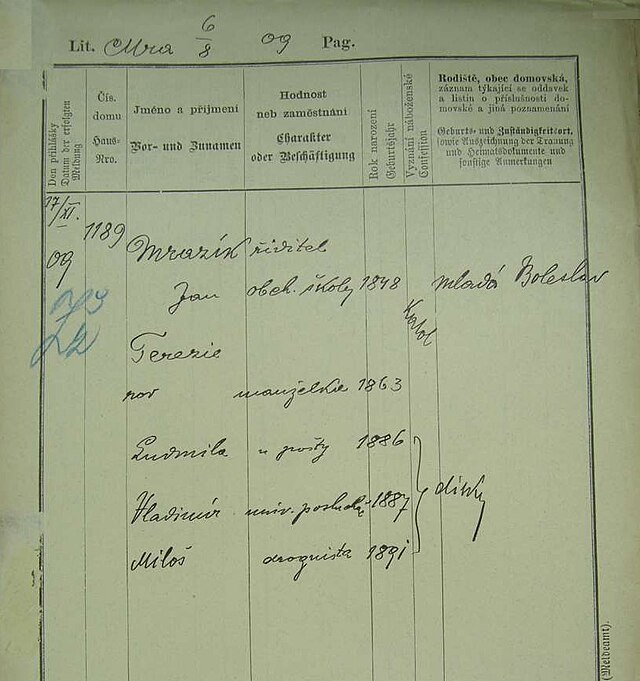 6
Lit. Mra 8 09 Pag.
Den přihlášky
Datum der erfolgten
Meldung
Čís.
domu
Haus-
Nro.
Jméno a příjmení
Vor- und Zunamen
Hodnost
neb zaměstnání
Charakter
oder Beschäftigung
Rok narození
Geburtsjahr
Vyznání náboženské
Confession
Rodiště, obec domovská,
záznam týkající se oddavek
a listin o příslušnosti do-
movské a jiná poznamenání
Geburts- und Zuständigkeitsort,
sowie Auszeichnung der Trauung
und Heimatsdokumente und
sonstige Anmerkungen
17/XI.
09
1189
Mrazík ředitel
Jan obch. školy 1848 Mladá Boleslav
Katol
Terezie
manželka 1863
Ludmila u pošty 1886
Vladimír univ. posluch. 1887 dítky
Miloš droguista 1891
(Meldeamt).